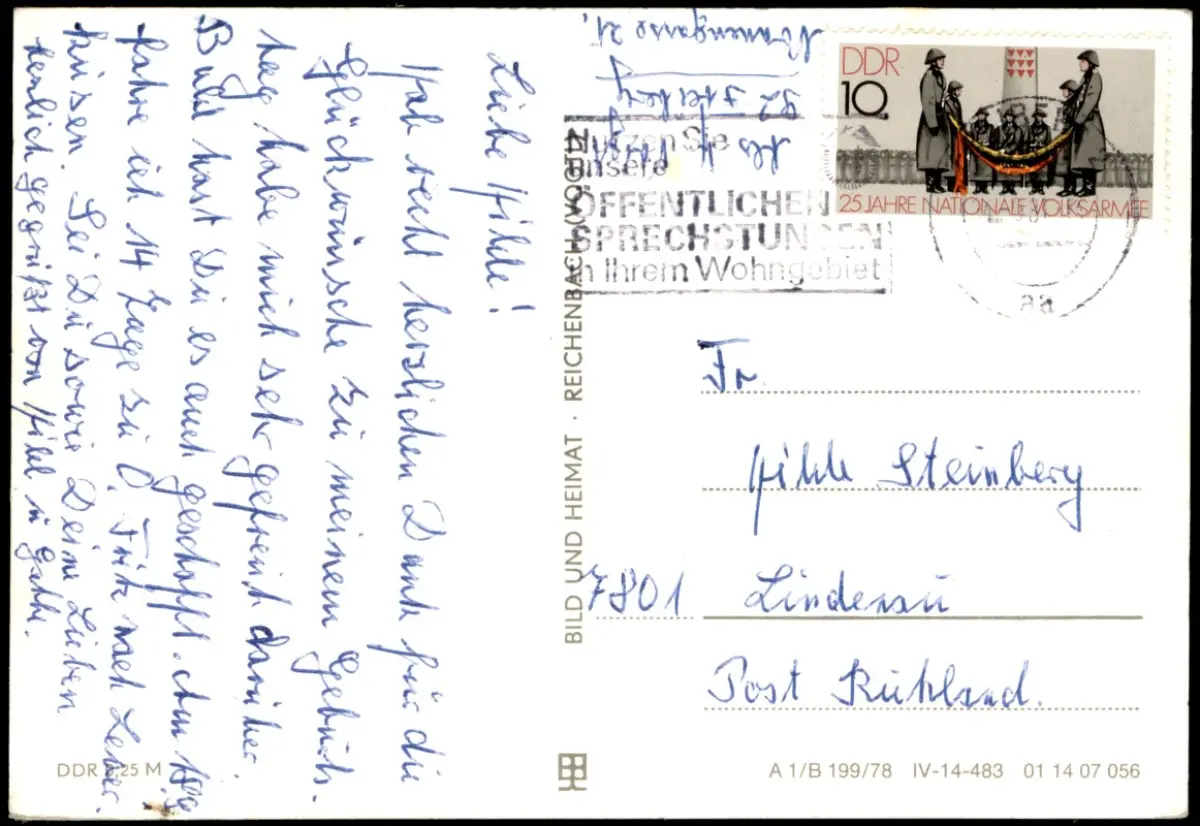 Liebe Hilde!
Hab recht herzlichen Dank für die
Glückwünsche zu meinem Geburts-
tag, habe mich sehr gefreut darüber.
Bald hast Du es auch geschafft. Am
fahre ich 14 Tage zu O. Fritz nach
Sei Du sowie Deine Lieben
herzlich gegrüßt von
DDR 0,25 M
BILD UND HEIMAT · REICHENBACH (VOGTL)
Nonnengasse 21
92 Freiberg
Nutzen Sie
unsere
ÖFFENTLICHEN
SPRECHSTUNDEN
in Ihrem Wohngebiet
DDR
10
25 JAHRE NATIONALE VOLKSARMEE
aa
Fr.
Hilde Steinberg
7801 Lindenau
Post Ruhland.
A 1/B 199/78 IV-14-483 01 14 07 056